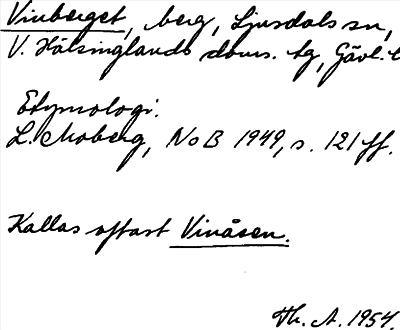 Vinberget, berg, Ljusdals sn,
V. Hälsinglands doms. tg, Gävl. l
Etymologi.
L. Moberg, NoB 1949, s. 121 ff.
Kallas oftast Vinåsen.
Th. A. 1954.